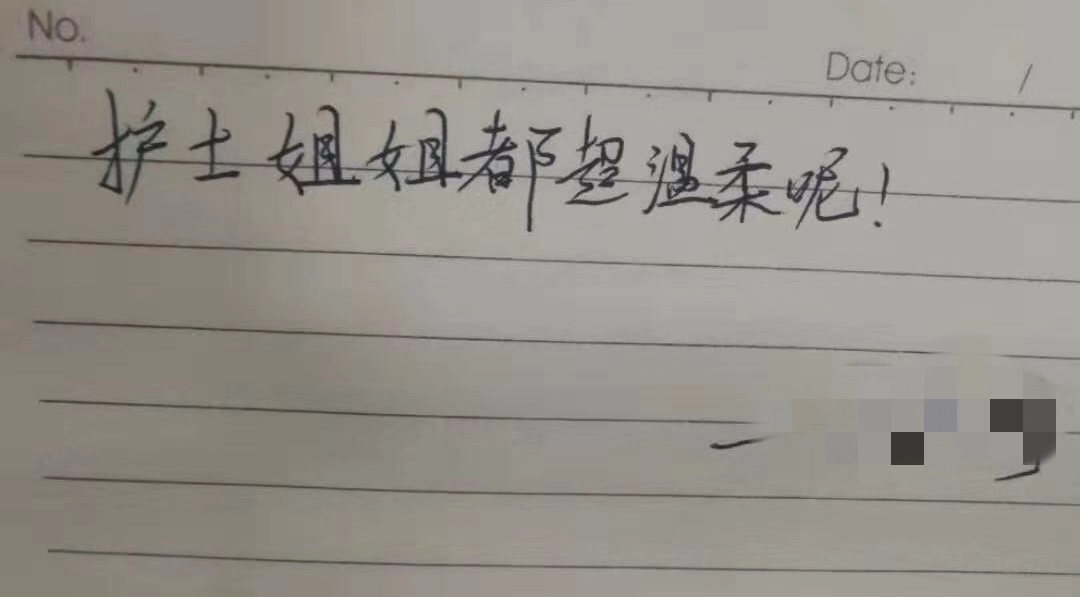 No.
Date: /
护士姐姐都超温柔呢!